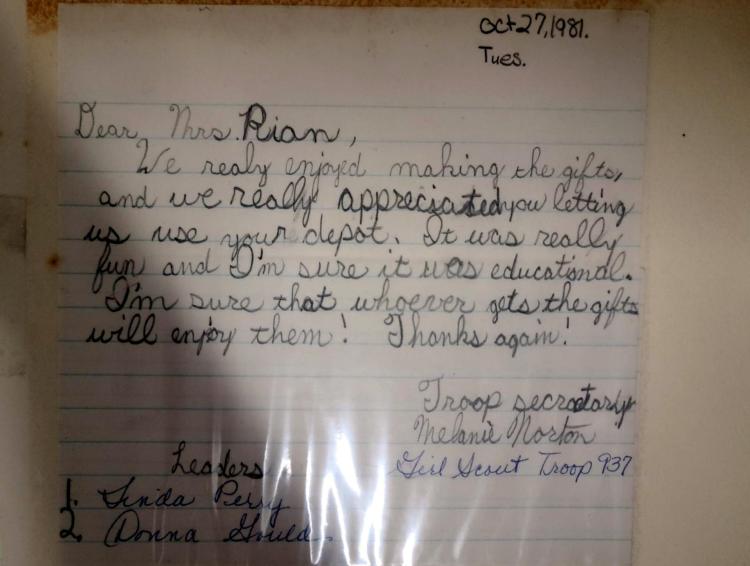 Oct 27, 1981.
Tues.
Dear Mrs. Rian,
We realy enjoyed making the gifts,
and we really appreciated you letting
us use your depot. It was really
fun and I'm sure it was educational.
I'm sure that whoever gets the gifts
will enjoy them! Thanks again!
Troop secratary
Melanie Norton
Girl Scout Troop 937
Leaders
1. Linda Perry
2. Donna Gould